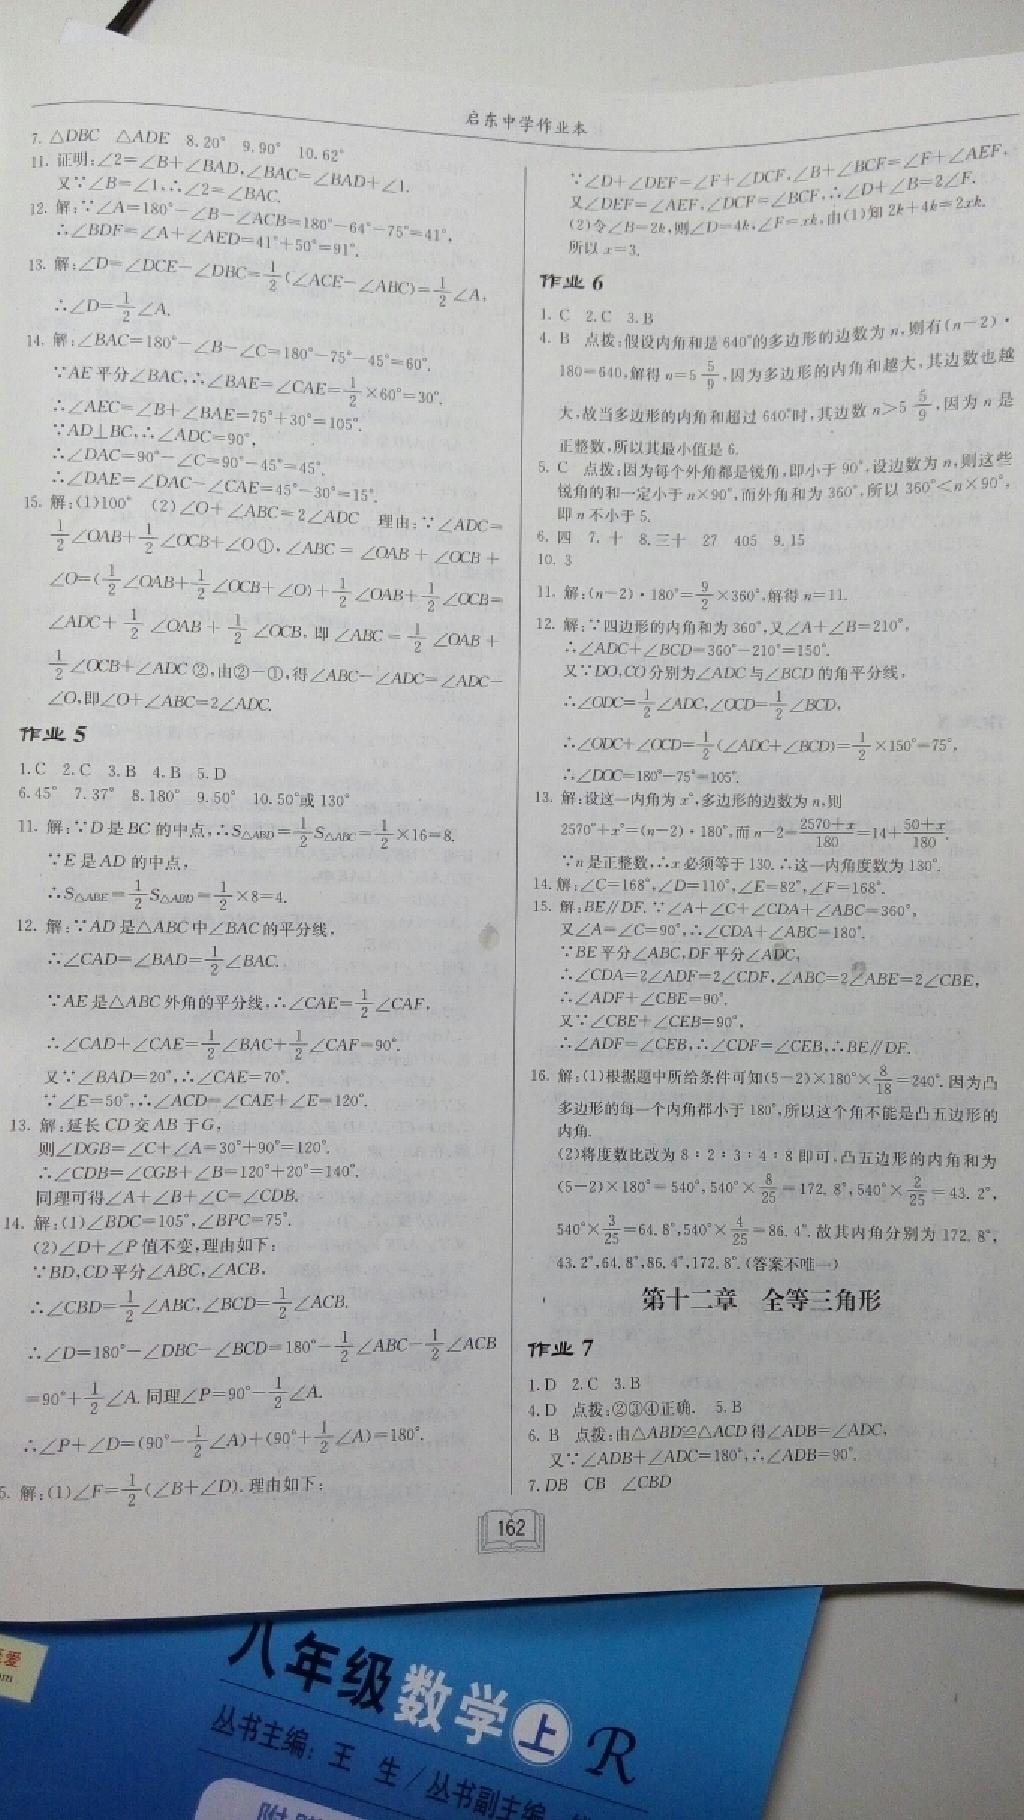 启东中学作业本
7. △DBC △ADE 8. 20° 9. 90° 10. 62°
11. 证明:∠2=∠B+∠BAD,∠BAC=∠BAD+∠1.
又∵∠B=∠1,∴∠2=∠BAC.
12. 解:∵∠A=180°-∠B-∠ACB=180°-64°-75°=41°,
∴∠BDF=∠A+∠AED=41°+50°=91°.
13. 解:∠D=∠DCE-∠DBC=1/2(∠ACE-∠ABC)=1/2∠A,
∴∠D=1/2∠A.
14. 解:∠BAC=180°-∠B-∠C=180°-75°-45°=60°.
∵AE平分∠BAC,∴∠BAE=∠CAE=1/2×60°=30°.
∴∠AEC=∠B+∠BAE=75°+30°=105°.
∵AD⊥BC,∴∠ADC=90°,
∴∠DAC=90°-∠C=90°-45°=45°.
∴∠DAE=∠DAC-∠CAE=45°-30°=15°.
15. 解:(1)100° (2)∠O+∠ABC=2∠ADC 理由:∵∠ADC=
1/2∠OAB+1/2∠OCB+∠O①,∠ABC=∠OAB+∠OCB+
∠O=(1/2∠OAB+1/2∠OCB+∠O)+1/2∠OAB+1/2∠OCB=
∠ADC+1/2∠OAB+1/2∠OCB,即∠ABC=1/2∠OAB+
1/2∠OCB+∠ADC②,由②-①,得∠ABC-∠ADC=∠ADC-
∠O,即∠O+∠ABC=2∠ADC.
作业5
1. C 2. C 3. B 4. B 5. D
6. 45° 7. 37° 8. 180° 9. 50° 10. 50°或130°
11. 解:∵D是BC的中点,∴S△ABD=1/2S△ABC=1/2×16=8.
∵E是AD的中点,
∴S△ABE=1/2S△ABD=1/2×8=4.
12. 解:∵AD是△ABC中∠BAC的平分线,
∴∠CAD=∠BAD=1/2∠BAC.
∵AE是△ABC外角的平分线,∴∠CAE=1/2∠CAF,
∴∠CAD+∠CAE=1/2∠BAC+1/2∠CAF=90°.
又∵∠BAD=20°,∴∠CAE=70°.
∵∠E=50°,∴∠ACD=∠CAE+∠E=120°.
13. 解:延长CD交AB于G,
则∠DGB=∠C+∠A=30°+90°=120°.
∴∠CDB=∠CGB+∠B=120°+20°=140°.
同理可得∠A+∠B+∠C=∠CDB.
14. 解:(1)∠BDC=105°,∠BPC=75°.
(2)∠D+∠P值不变,理由如下:
∵BD,CD平分∠ABC,∠ACB,
∴∠CBD=1/2∠ABC,∠BCD=1/2∠ACB.
∴∠D=180°-∠DBC-∠BCD=180°-1/2∠ABC-1/2∠ACB
=90°+1/2∠A.同理∠P=90°-1/2∠A.
∴∠P+∠D=(90°-1/2∠A)+(90°+1/2∠A)=180°.
5. 解:(1)∠F=1/2(∠B+∠D).理由如下:
∵∠D+∠DEF=∠F+∠DCF,∠B+∠BCF=∠F+∠AEF,
又∠DEF=∠AEF,∠DCF=∠BCF,∴∠D+∠B=2∠F.
(2)令∠B=2k,则∠D=4k,∠F=xk,由(1)知2k+4k=2xk.
所以x=3.
作业6
1. C 2. C 3. B
4. B 点拨:假设内角和是640°的多边形的边数为n,则有(n-2)·
180=640,解得n=5 5/9,因为多边形的内角和越大,其边数也越
大,故当多边形的内角和超过640°时,其边数n>5 5/9,因为n是
正整数,所以其最小值是6.
5. C 点拨:因为每个外角都是锐角,即小于90°,设边数为n,则这些
锐角的和一定小于n×90°,而外角和为360°,所以360°<n×90°,
即n不小于5.
6. 四 7. 十 8. 三十 27 405 9. 15
10. 3
11. 解:(n-2)·180°=9/2×360°,解得n=11.
12. 解:∵四边形的内角和为360°,又∠A+∠B=210°,
∴∠ADC+∠BCD=360°-210°=150°.
又∵DO,CO分别为∠ADC与∠BCD的角平分线,
∴∠ODC=1/2∠ADC,∠OCD=1/2∠BCD,
∴∠ODC+∠OCD=1/2(∠ADC+∠BCD)=1/2×150°=75°,
∴∠DOC=180°-75°=105°.
13. 解:设这一内角为x°,多边形的边数为n,则
2570°+x°=(n-2)·180°,而n-2=(2570+x)/180=14+(50+x)/180.
∵n是正整数,∴x必须等于130.∴这一内角度数为130°.
14. 解:∠C=168°,∠D=110°,∠E=82°,∠F=168°.
15. 解:BE∥DF.∵∠A+∠C+∠CDA+∠ABC=360°,
又∠A=∠C=90°,∴∠CDA+∠ABC=180°.
∵BE平分∠ABC,DF平分∠ADC,
∴∠CDA=2∠ADF=2∠CDF,∠ABC=2∠ABE=2∠CBE,
∴∠ADF+∠CBE=90°.
又∵∠CBE+∠CEB=90°,
∴∠ADF=∠CEB,∴∠CDF=∠CEB,∴BE∥DF.
16. 解:(1)根据题中所给条件可知(5-2)×180°×8/18=240°.因为凸
多边形的每一个内角都小于180°,所以这个角不能是凸五边形的
内角.
(2)将度数比改为8:2:3:4:8即可,凸五边形的内角和为
(5-2)×180°=540°,540°×8/25=172.8°,540°×2/25=43.2°,
540°×3/25=64.8°,540°×4/25=86.4°.故其内角分别为172.8°,
43.2°,64.8°,86.4°,172.8°.(答案不唯一)
第十二章 全等三角形
作业7
1. D 2. C 3. B
4. D 点拨:②③④正确. 5. B
6. B 点拨:由△ABD≌△ACD得∠ADB=∠ADC,
又∵∠ADB+∠ADC=180°,∴∠ADB=90°.
7. DB CB ∠CBD
162
八年级数学上R
丛书主编:王 生/丛书副主编